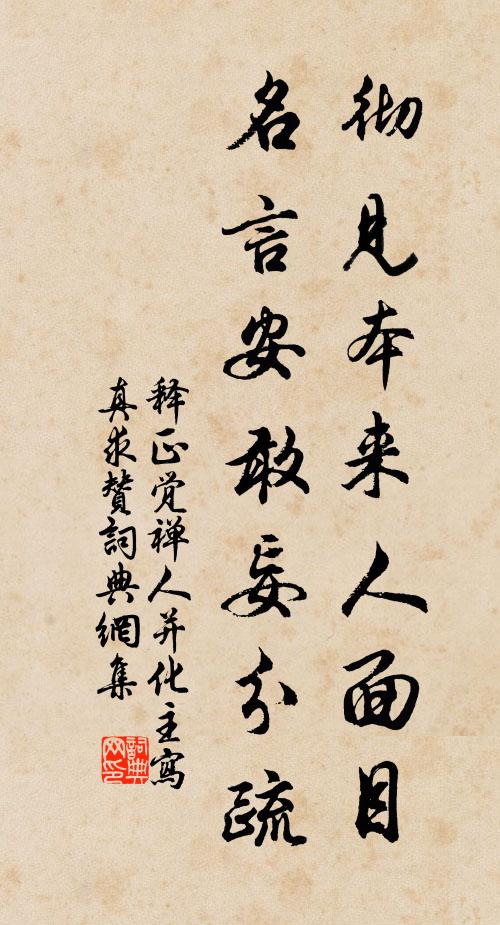 彻见本来人面目
名言安敢妄分疏
释正觉禅人并化主寫
真求贊詞典網集
詞典
网印